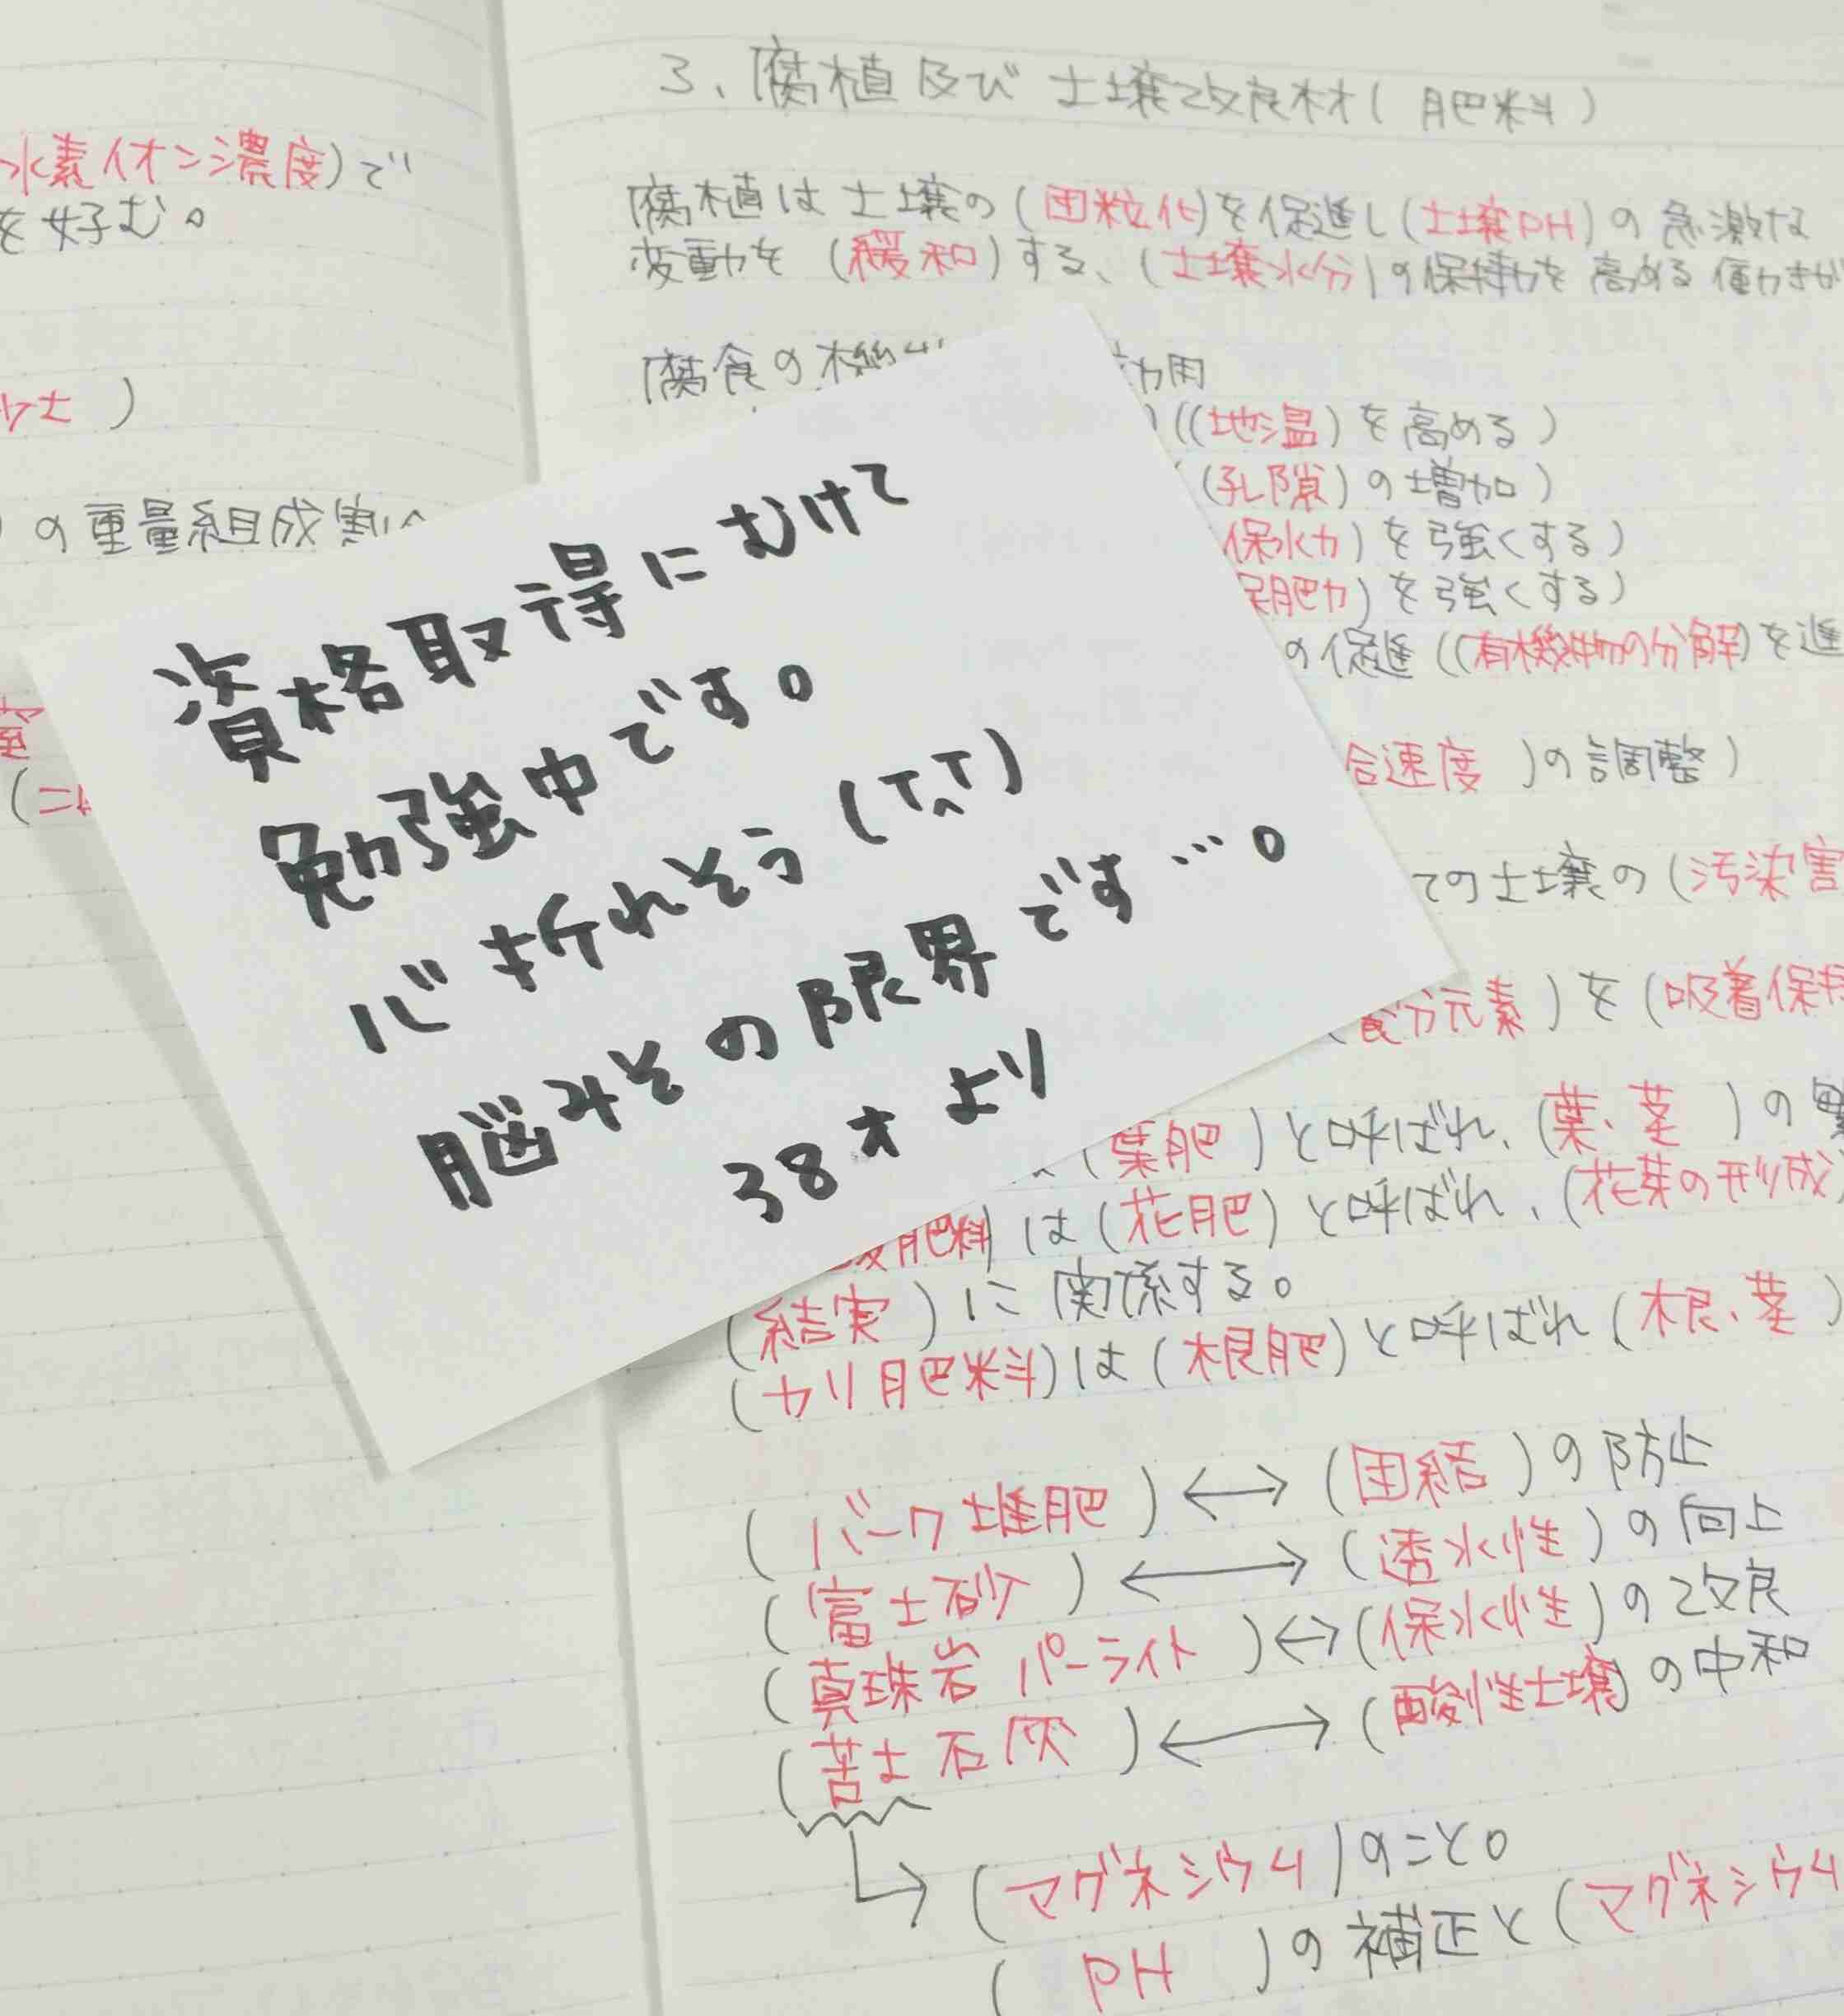 水素イオン濃度)で
を好む。
)
の重量組成割
3、腐植及び土壌改良材(肥料)
腐植は土壌の(団粒化)を促進し(土壌PH)の急激な
変動を(緩和)する、(土壌水分)の保持力を高める働きが
腐食の機
用
((地温)を高める)
(孔隙)の増加)
保水力)を強くする)
保肥力)を強くする)
の促進((有機物の分解)を進
合速度)の調整)
ての土壌の(汚染害
養分元素)を(吸着保持
(葉肥)と呼ばれ、(葉、茎)の
肥料)は(花肥)と呼ばれ、(花芽の形成)
(結実)に関係する。
(カリ肥料)は(根肥)と呼ばれ(根、茎)
(バーク堆肥)↔(固結)の防止
(富士砂)↔(透水性)の向上
(真珠岩パーライト)↔(保水性)の改良
(苦土石灰)↔(酸性土壌)の中和
(マグネシウム)のこと。
(PH)の補正と(マグネシウム
資格取得にむけて
勉強中です。
心折れそう(T^T)
脳みその限界です…。
38才より